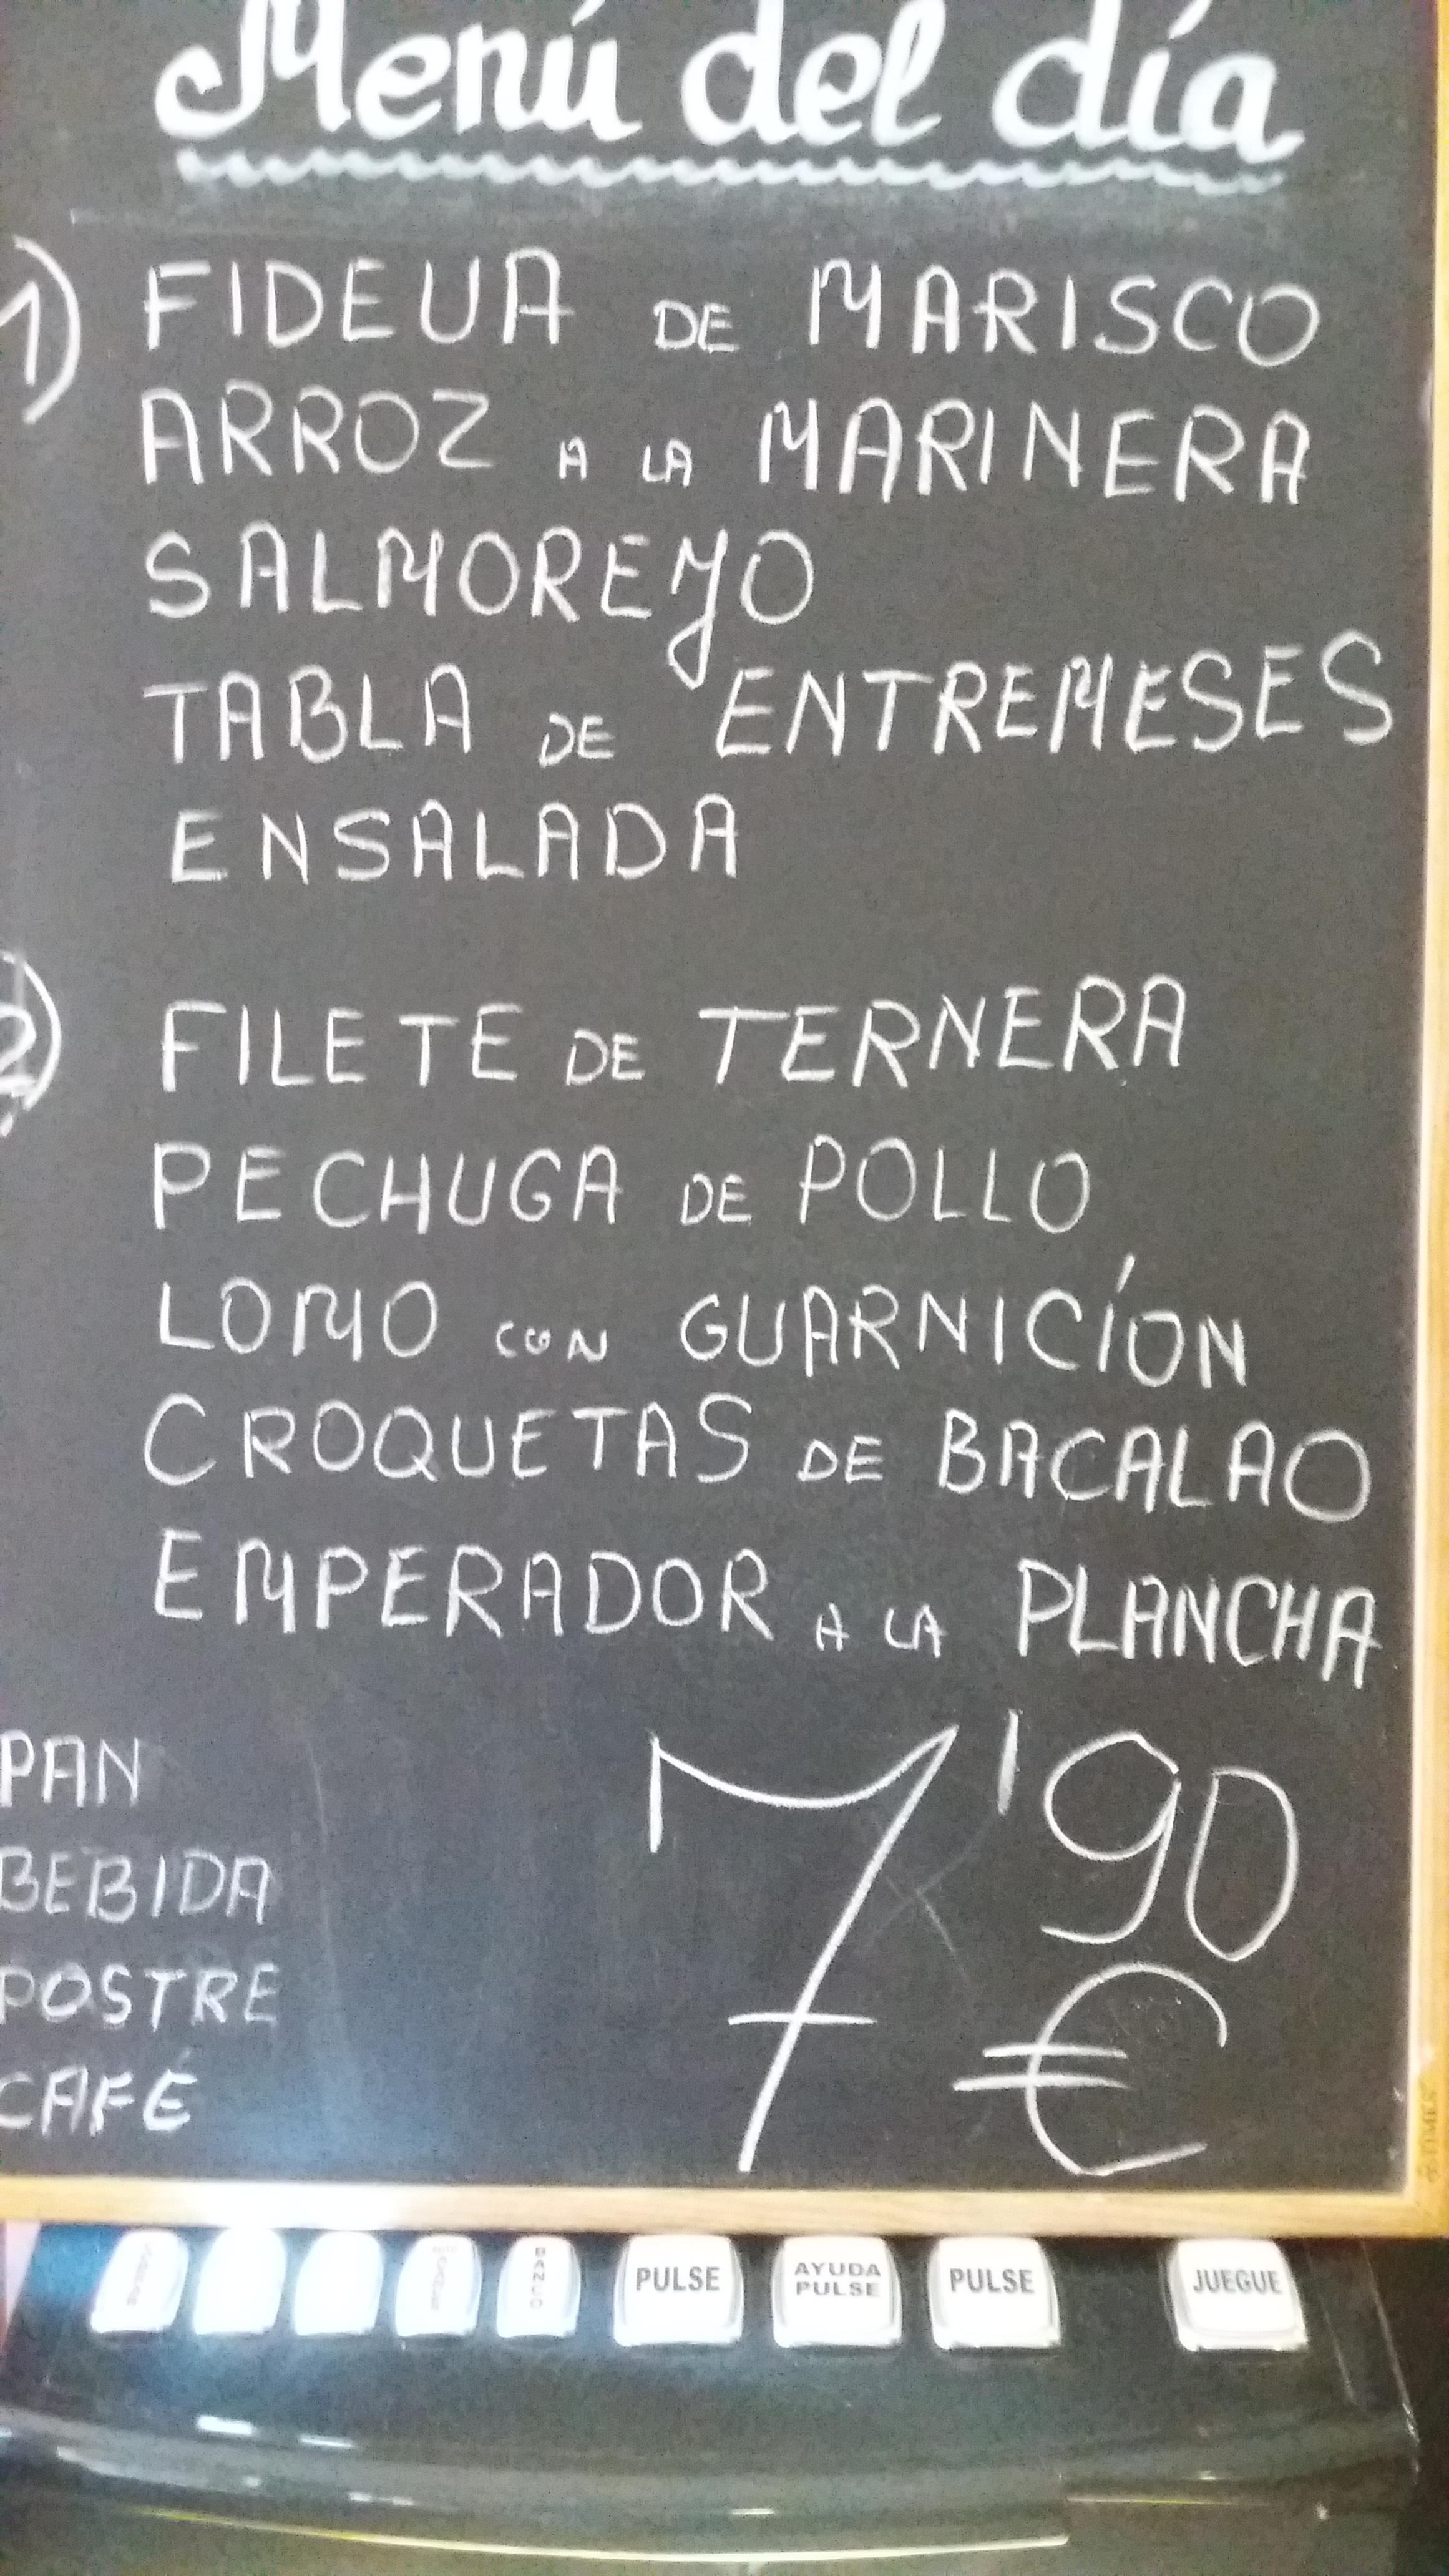 Menú del día
1) FIDEUA DE MARISCO
ARROZ A LA MARINERA
SALMOREJO
TABLA DE ENTREMESES
ENSALADA
2) FILETE DE TERNERA
PECHUGA DE POLLO
LOMO CON GUARNICÍON
CROQUETAS DE BACALAO
EMPERADOR A LA PLANCHA
PAN
BEBIDA
POSTRE
CAFÉ
7'90
€
BANCO
PULSE
AYUDA
PULSE
PULSE
JUEGUE